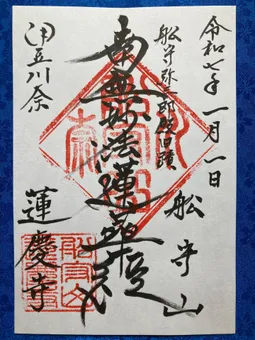 令和七年一月一日
舩守山
舩守弥三郎殿旧蹟
南無妙法蓮華経
伊豆川奈
蓮慶寺